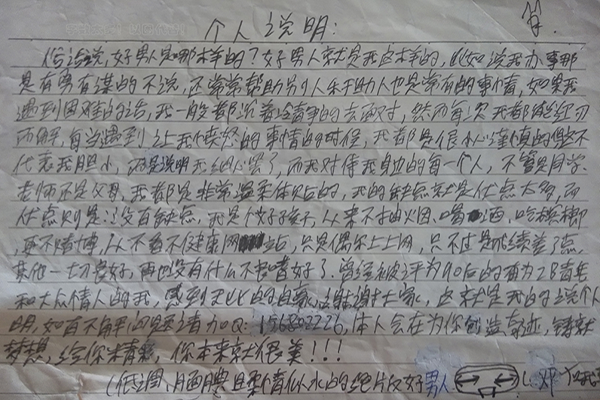 个人说明:
俗话说,好男人是哪样的?好男人就是我这样的,比如说我办事那
是有勇有谋的不说,还常常帮助别人乐于助人也是常有的事情,如果我
遇到困难的话,我一般都沉着冷静的去面对,然而每次我都能迎刃
而解,每当遇到让我愤怒的事情的时候,我都是很小心谨慎的但不
代表我胆小,而是说明我细心罢了,而我对待我身边的每一个人,不管是同学
老师还是父母,我都是非常温柔体贴的,我的缺点就是优点太多,而
优点则是没有缺点,我是个好孩子,从来不抽烟,喝酒,吃槟榔
更不赌博,从不看不健康网站,只是偶尔上上网,只不过是成绩差了点,
其他一切良好,再也没有什么不良嗜好了.曾经被评为90后的有为2B青年
和大众情人的我,感到无比的自豪,谢谢大家,这就是我的个人
明,如有不解的要请加Q:156802226,本人会在为你创造奇迹,铸就
梦想,给你精彩,你本来就很美!!!
(低调,腼腆且柔情似水的绝版好男人